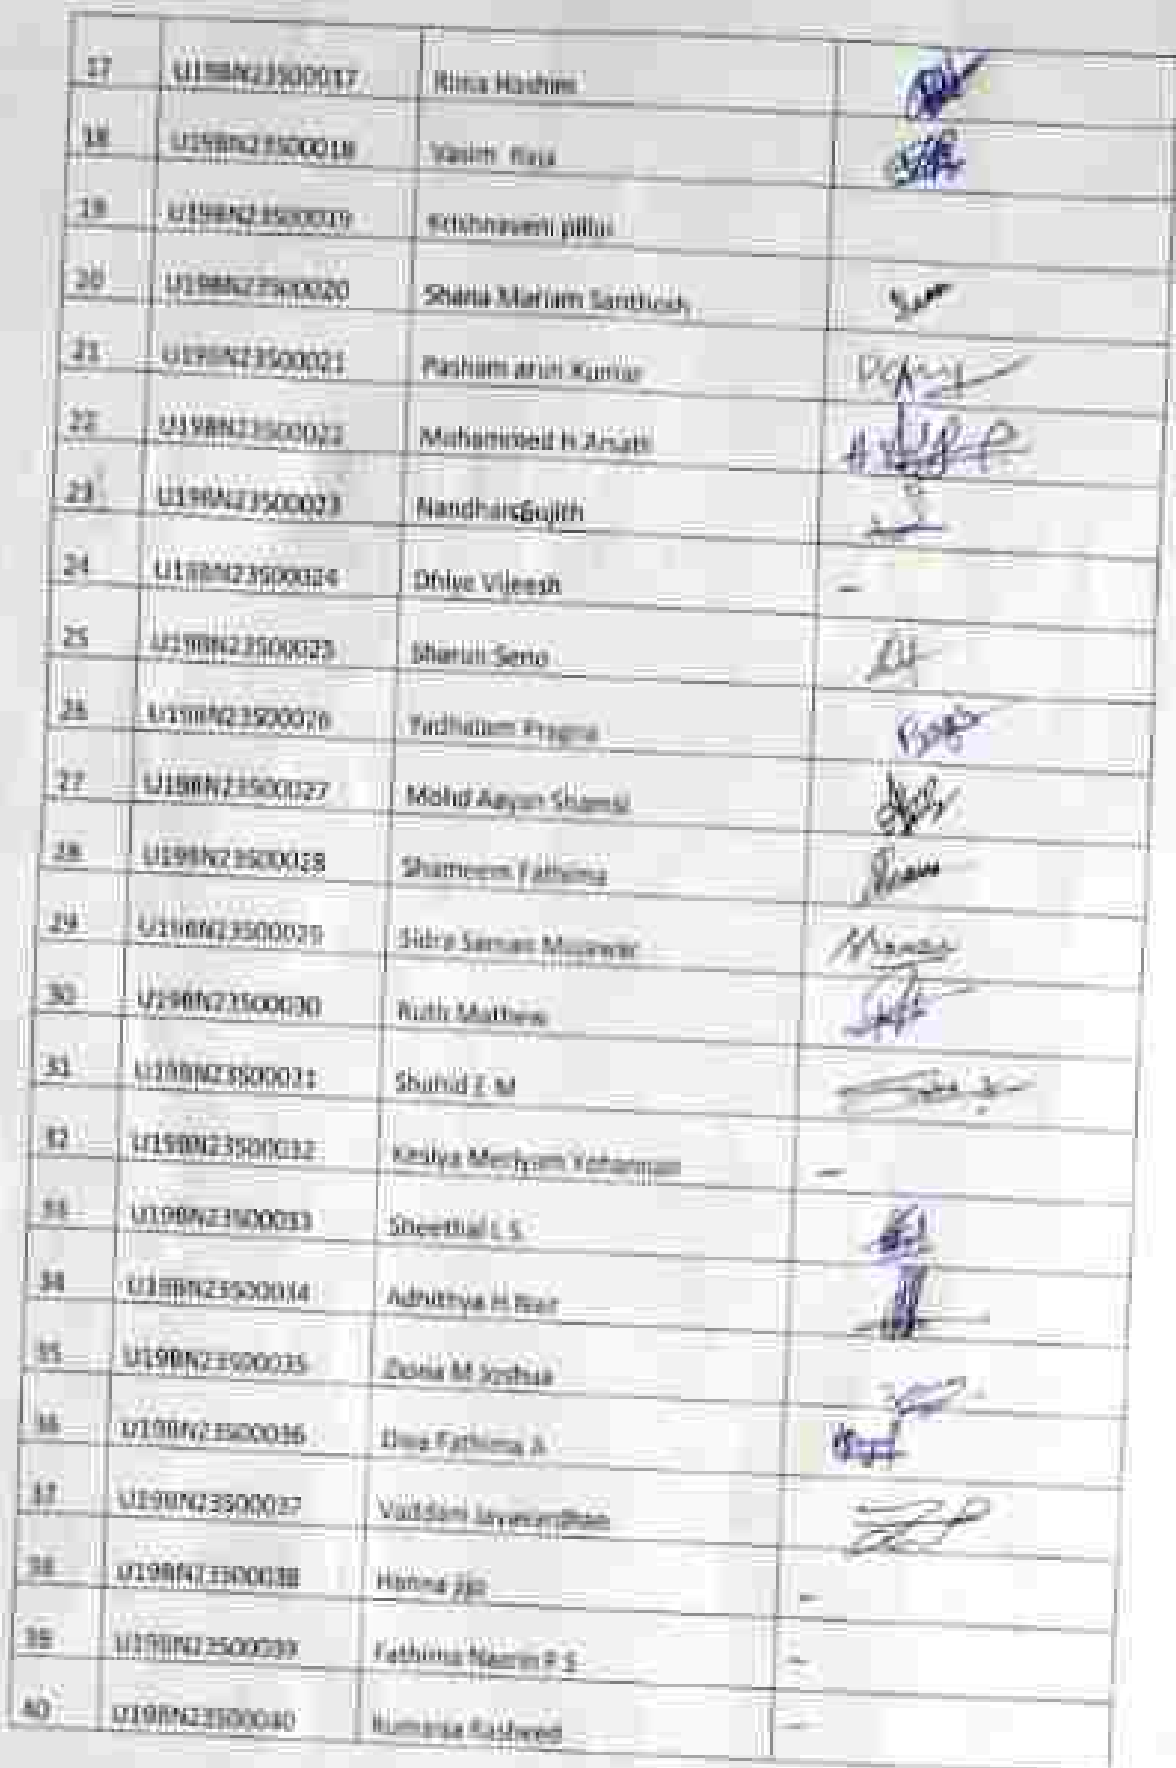 17 U19BN23S00017 Rima Hashim
18 U19BN23S00018 Vasim Raja
19 U19BN23S00019 Krishnaveni pillai
20 U19BN23S00020 Shana Mariam Santhosh
21 U19BN23S00021 Pasham arun Kumar
22 U19BN23S00022 Mohammed H Arsath
23 U19BN23S00023 Nandhais Sujith
24 U19BN23S00024 Dhiye Vijeesh
25 U19BN23S00025 Sharun Seno
26 U19BN23S00026 Pragna
27 U19BN23S00027 Mohd Aayan Shamsi
28 U19BN23S00028 Shameem Fathima
29 U19BN23S00029 Sidra Saman Mujawar
30 U19BN23S00030 Ruth Mathew
31 U19BN23S00031 Shahid Z M
32 U19BN23S00032 Kesiya Meriyam Yohannan
33 U19BN23S00033 Sheethal L S
34 U19BN23S00034 Adhithya H Nair
35 U19BN23S00035 Ziona M Joshua
36 U19BN23S00036 Diya Fathima A
37 U19BN23S00037 Vaddani Jayavardhan
38 U19BN23S00038 Hanna Jijo
39 U19BN23S00039 Fathima Nasrin P S
40 U19BN23S00040 Rumaisa Rasheed